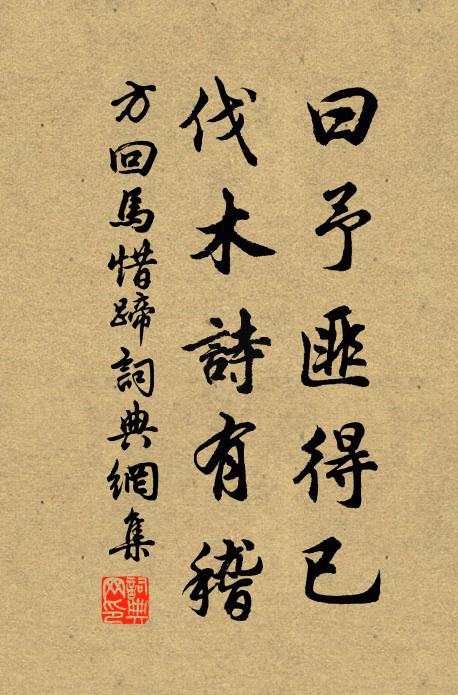 曰予匪得已
伐木詩有稽
方回馬惜蹄詞典網集
詞典网印